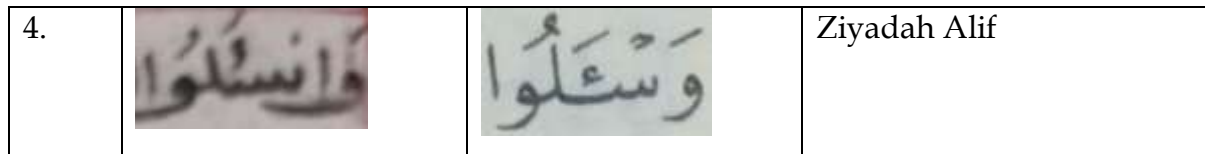 4.
وَانسـَٔلُوا
وَسْـَٔلُوا
Ziyadah Alif